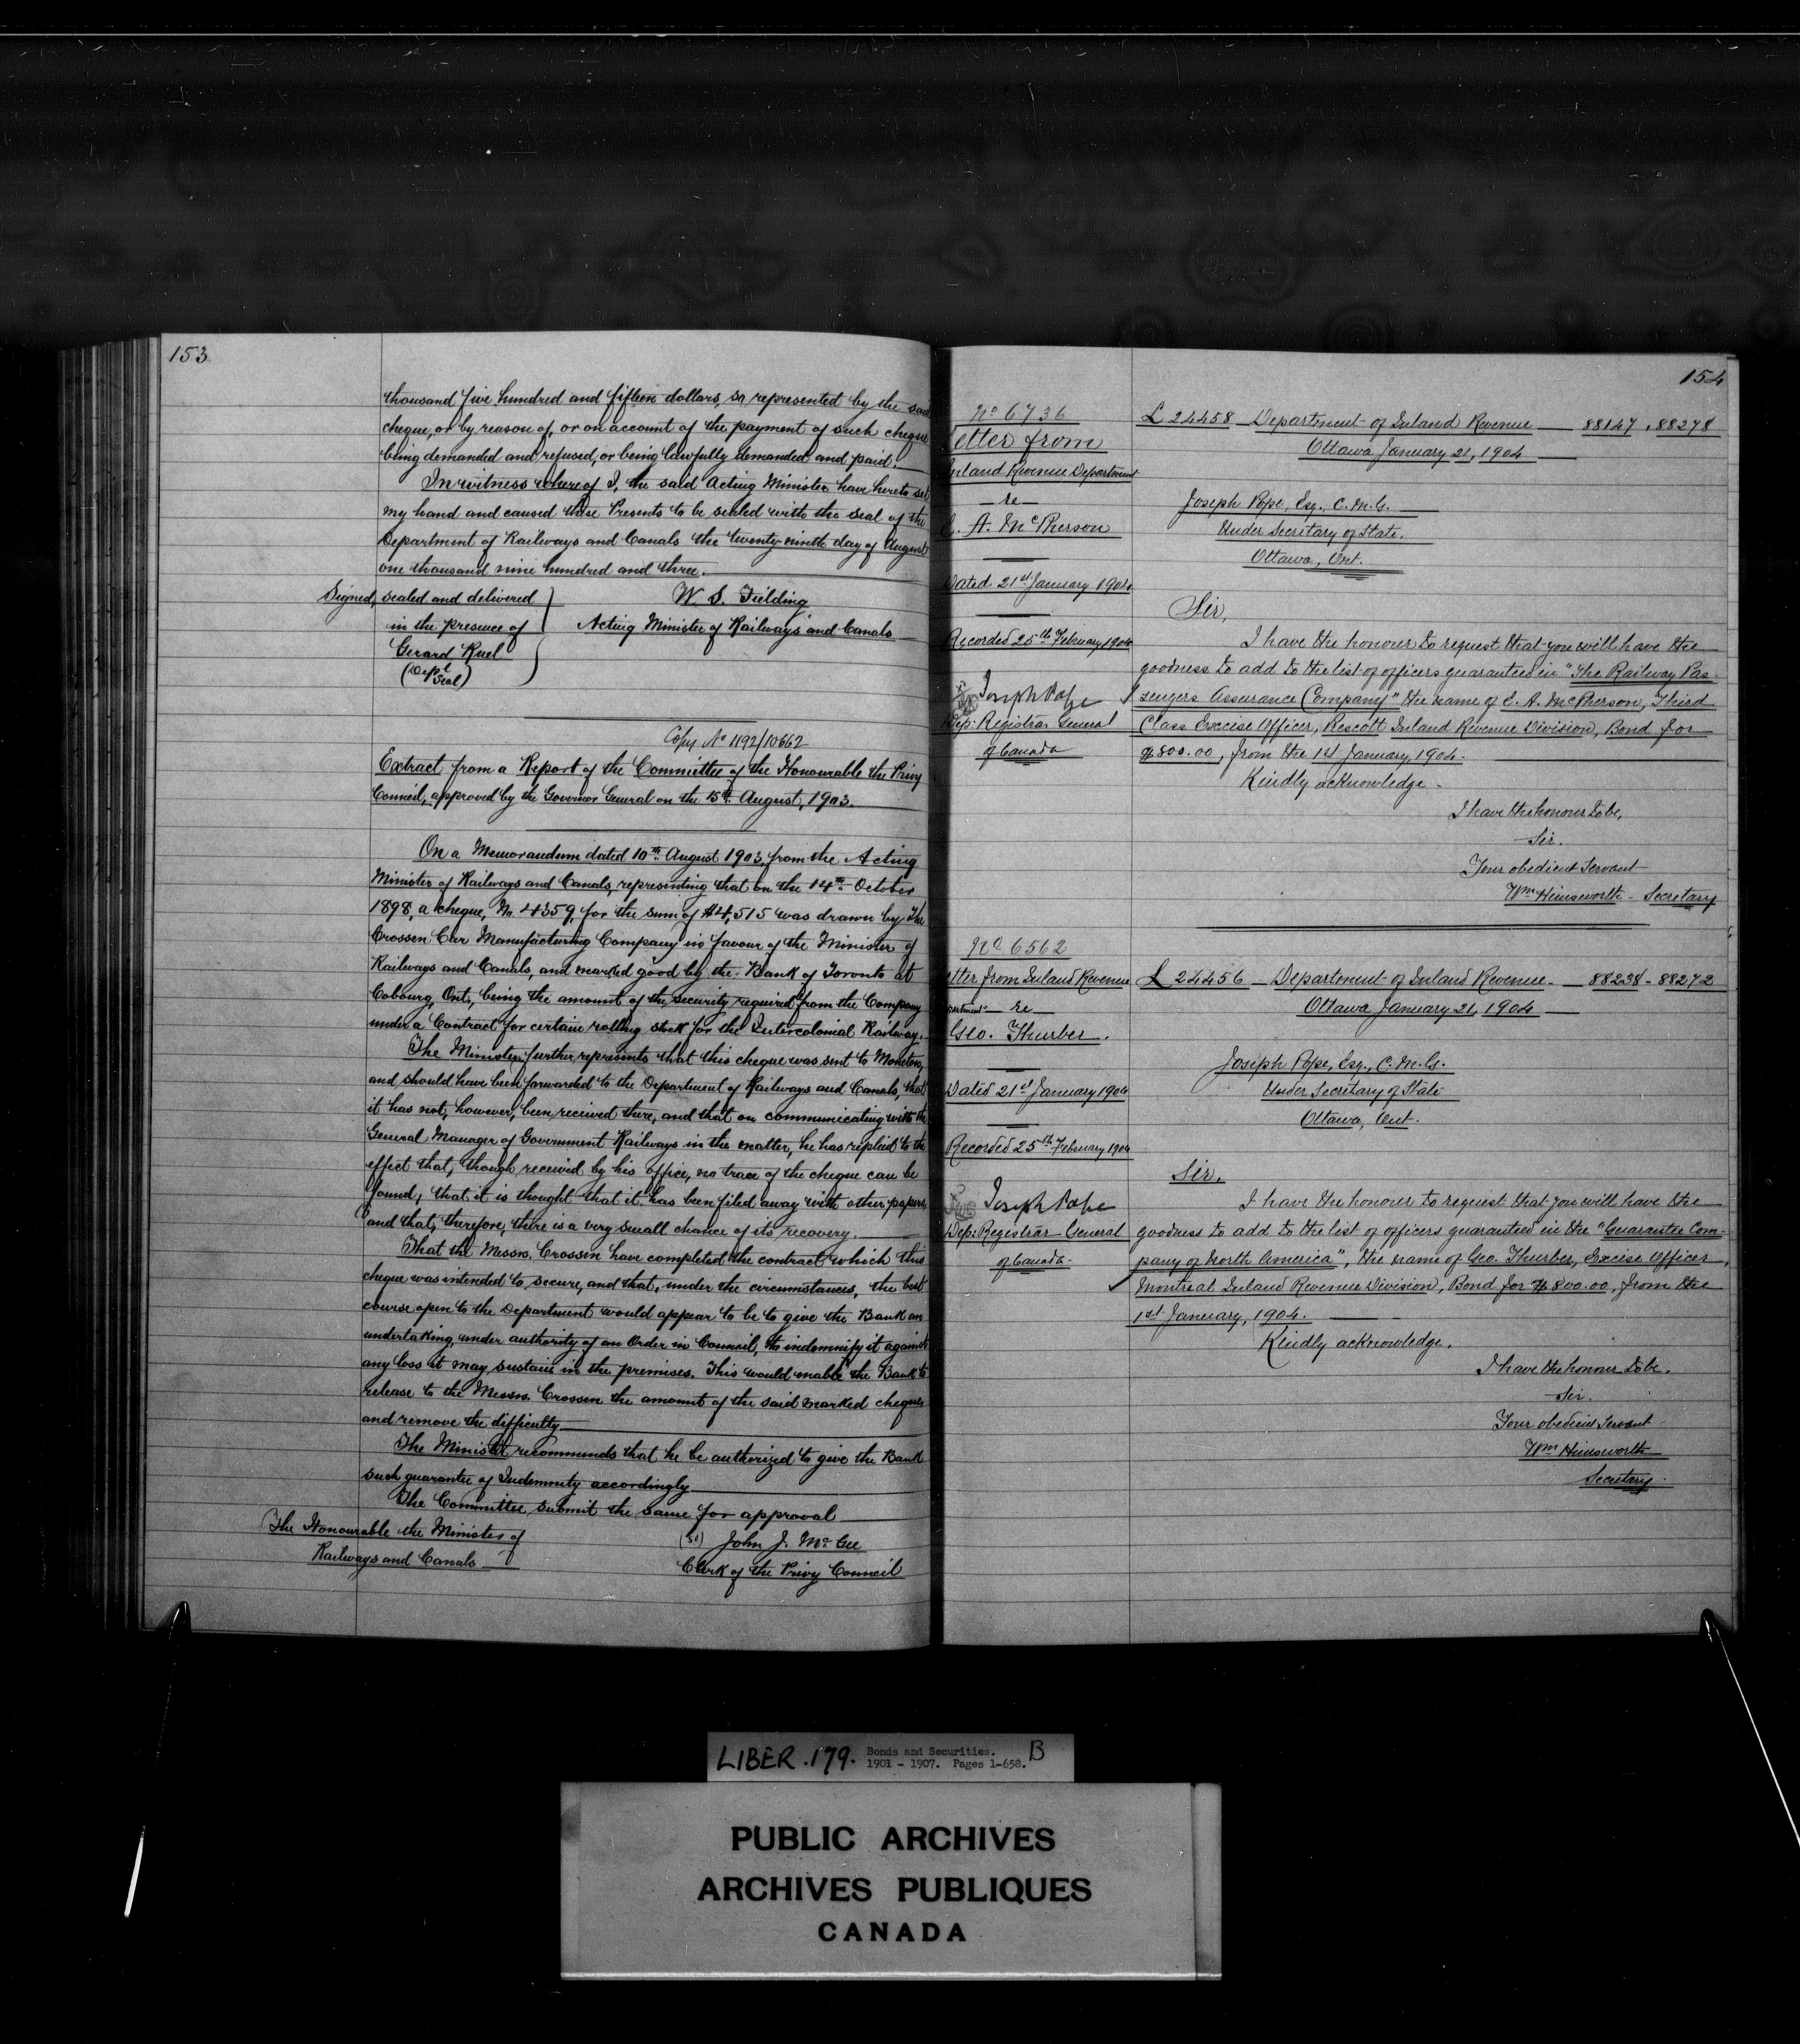 153
thousand five hundred and fifteen dollars, so represented by the said
cheque, or by reason of, or on account of the payment of such cheque
being demanded and refused, or being lawfully demanded and paid.
In witness whereof I, the said Acting Minister have hereto set
my hand and caused these Presents to be sealed with the seal of the
Department of Railways and Canals the twenty ninth day of August
one thousand nine hundred and three.
Signed, sealed and delivered
in the presence of
Gerard Ruel
(Dept Seal)
W. S. Fielding
Acting Minister of Railways and Canals
Copy No 1192/10662
Extract from a Report of the Committee of the Honourable the Privy
Council, approved by the Governor General on the 15th August, 1903.
On a Memorandum dated 10th August 1903, from the Acting
Minister of Railways and Canals, representing that on the 14th October
1898, a cheque, No. 4359, for the sum of $4,515 was drawn by The
Crossen Car Manufacturing Company in favour of the Minister of
Railways and Canals, and marked good by the Bank of Toronto at
Cobourg, Ont., being the amount of the security required from the Company
under a Contract for certain rolling stock for the Intercolonial Railway.
The Minister further represents that this cheque was sent to Moncton,
and should have been forwarded to the Department of Railways and Canals, that
it has not, however, been received there, and that on communicating with the
General Manager of Government Railways in the matter, he has replied to the
effect that, though received by his office, no trace of the cheque can be
found, that it is thought that it has been filed away with other papers
and that, therefore, there is a very small chance of its recovery.
That the Messrs. Crossen have completed the contract which this
cheque was intended to secure, and that, under the circumstances, the best
course open to the Department would appear to be to give the Bank an
undertaking, under authority of an Order in Council, to indemnify it against
any loss it may sustain in the premises. This would enable the Bank to
release to the Messrs. Crossen the amount of the said marked cheque
and remove the difficulty
The Minister recommends that he be authorized to give the Bank
such guarantee of Indemnity accordingly
The Committee submit the same for approval
The Honourable the Minister of
Railways and Canals
(Sd) John J. McGee
Clerk of the Privy Council
154
No 6736
Letter from
Inland Revenue Department
re
A. McPherson
Dated 21st January 1904
Recorded 25th February 1904
Joseph Pope
Dep: Registrar General
of Canada
L 24458 Department of Inland Revenue 88147, 88278
Ottawa January 21, 1904
Joseph Pope, Esq. C.M.G.
Under Secretary of State.
Ottawa, Ont.
Sir,
I have the honour to request that you will have the
goodness to add to the list of officers guaranteed in "The Railway Pas-
sengers Assurance Company" the name of C. A. McPherson, Third
Class Excise Officer, Prescott Inland Revenue Division, Bond for
$500.00, from the 1st January, 1904.
Kindly acknowledge.
I have the honour to be,
Sir.
Your obedient Servant
Wm Himsworth - Secretary
No 6562
Letter from Inland Revenue
re
Geo. Thurber.
Dated 21st January 1904
Recorded 25th February 1904
Joseph Pope
Dep: Registrar General
of Canada
L 24456 Department of Inland Revenue 88238 - 88272
Ottawa January 21, 1904
Joseph Pope, Esq., C.M.G.
Under Secretary of State
Ottawa, Ont.
Sir,
I have the honour to request that you will have the
goodness to add to the list of officers guaranteed in the "Guarantee Com-
pany of North America", the name of Geo. Thurber, Excise Officer,
Montreal Inland Revenue Division, Bond for $800.00, from the
1st January, 1904.
Kindly acknowledge.
I have the honour to be.
Sir.
Your obedient Servant
Wm Himsworth
Secretary.
LIBER .179. Bonds and Securities. B
1901 - 1907. Pages 1-658.
PUBLIC ARCHIVES
ARCHIVES PUBLIQUES
CANADA